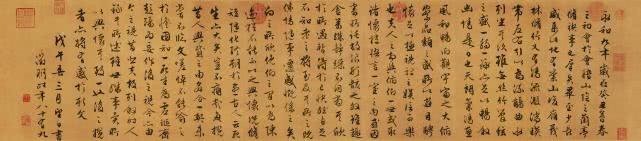 永和九年歲在癸丑暮春
之初會于會稽山陰之蘭亭
脩稧事也羣賢畢至少長
咸集此地有崇山峻領茂
林脩竹又有清流激湍映
帶左右引以為流觴曲水
列坐其次雖無絲竹管弦
之盛一觴一詠亦足以暢敘
幽情是日也天朗氣清惠
風和暢仰觀宇宙之大俯
察品類之盛所以遊目騁
懷足以極視聽之娛信可樂
也夫人之相與俯仰一世或取
諸懷抱悟言一室之內或因
寄所託放浪形骸之外雖趣
舍萬殊靜躁不同當其欣
於所遇暫得於己快然自足
不知老之將至及其所之既
惓情隨事遷感慨係之矣
向之所欣俛仰之間以為陳
迹猶不能不以之興懷況脩
短隨化終期於盡古人云死
生亦大矣豈不痛哉每攬
昔人興感之由若合一契未
嘗不臨文嗟悼不能喻之
於懷固知一死生為虛誕齊
彭殤為妄作後之視今亦由
今之視昔悲夫故列敘時人
錄其所述雖世殊事異所
以興懷其致一也後之攬
者亦將有感於斯文
戊午春三月望日書
徵明時年八十有九